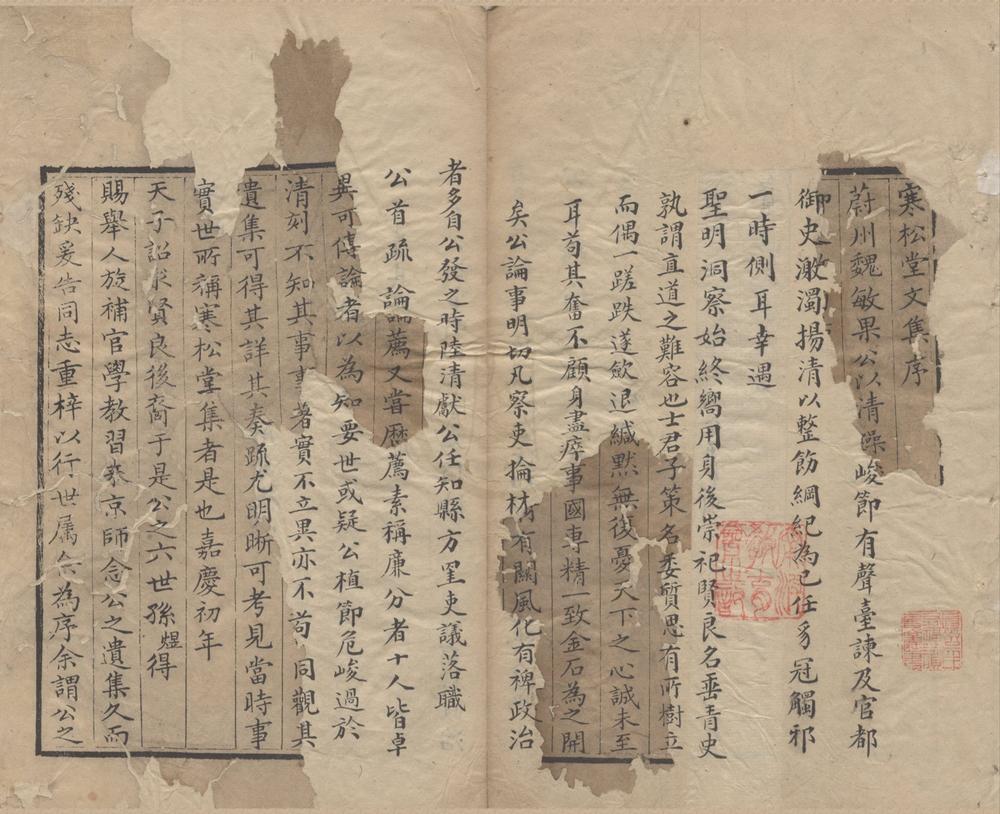 寒松堂文集序
蔚州魏敏果公以清操峻節有聲臺諫及官都
御史激濁揚清以整飭綱紀為己任豸冠觸邪
一時側耳幸遇
聖明洞察始終嚮用身後崇祀賢良名垂青史
孰謂直道之難容也士君子策名委質思有所樹立
而偶一蹉跌遂歛退緘默無復憂天下之心誠未至
耳苟其奮不顧身盡瘁事國專精一致金石為之開
矣公論事明切凡察吏掄材有關風化有裨政治
者多自公發之時陸清獻公任知縣方罣吏議落職
公首疏論薦又嘗歷薦素稱廉分者十人皆卓
異可傳論者以為知要世或疑公植節危峻過於
清刻不知其事事著實不立異亦不苟同觀其
遺集可得其詳其奏疏尤明晰可考見當時事
實世所稱寒松堂集者是也嘉慶初年
天子詔求賢良後裔于是公之六世孫煜得
賜舉人旋補官學教習来京師念公之遺集久而
殘缺爰告同志重梓以行世属余為序余謂公之